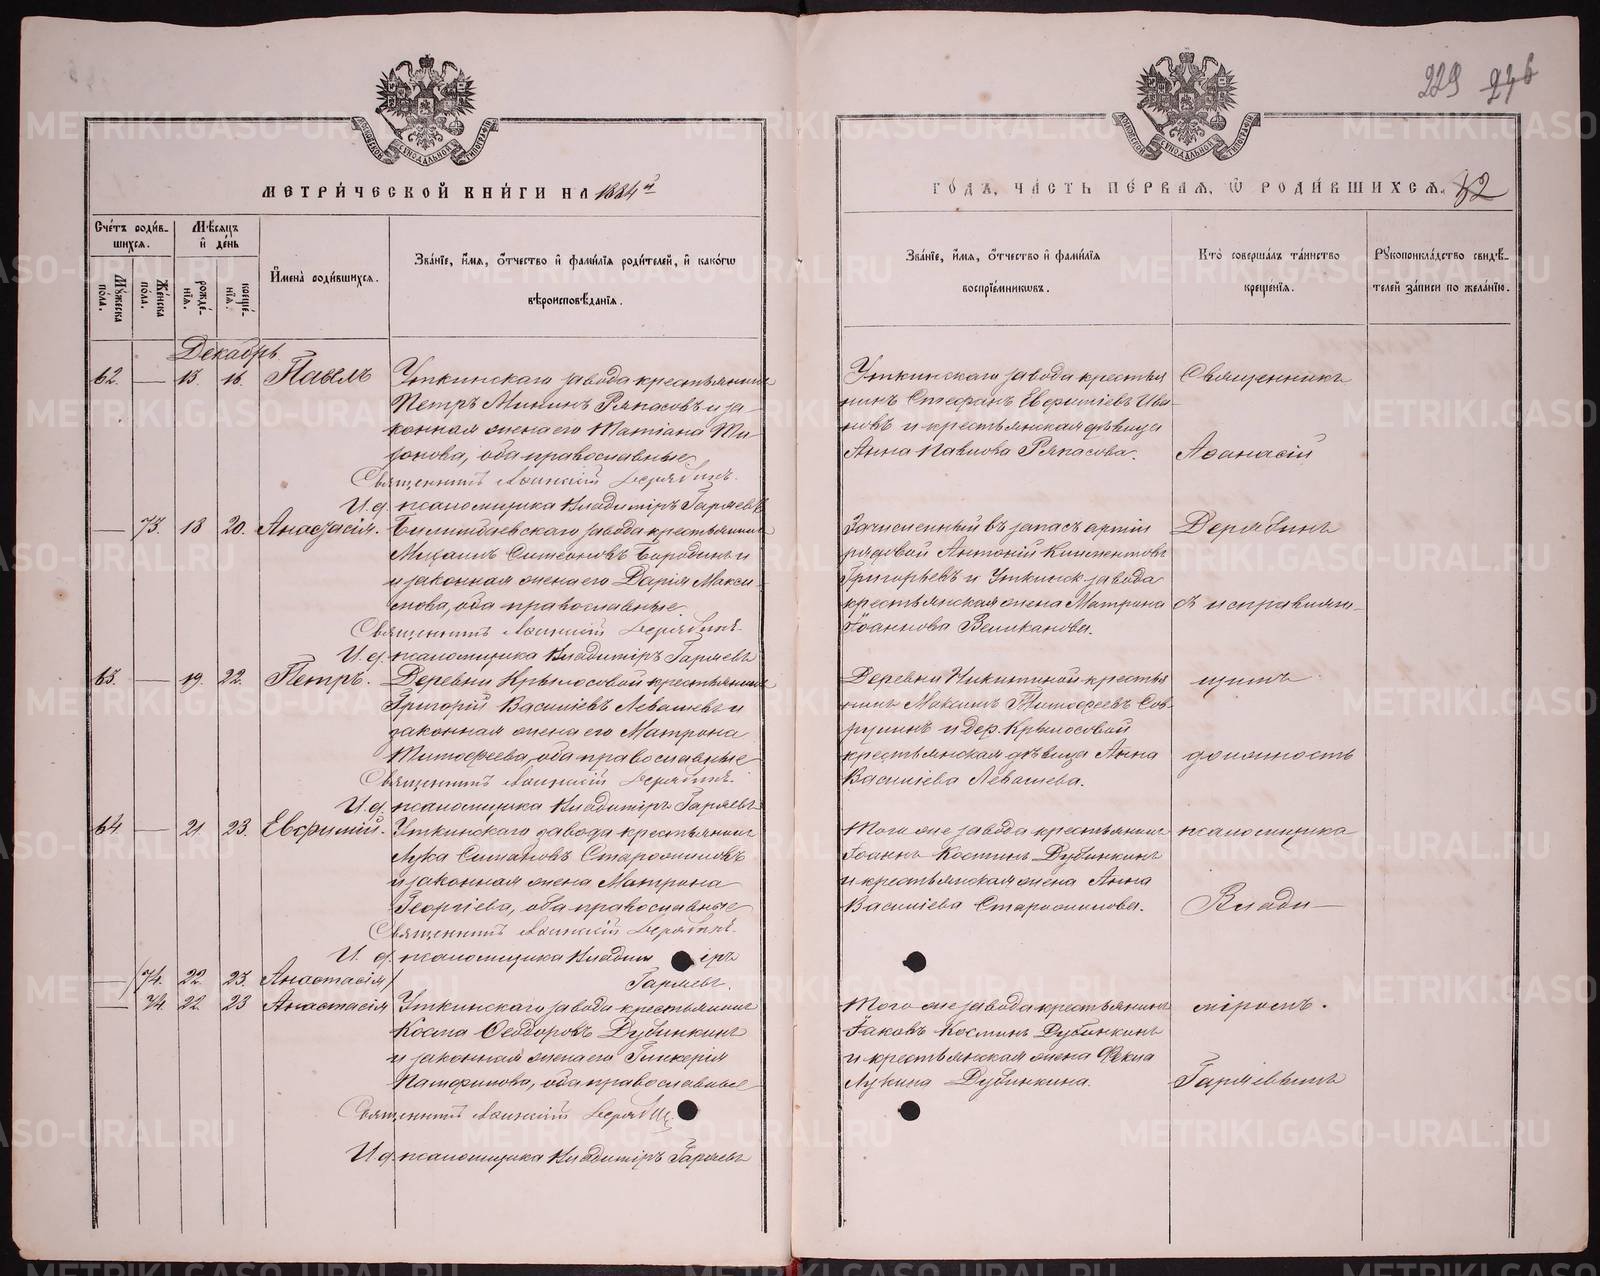 229 246
МЕТРИ́ЧЕСКОЙ КНИ́ГИ НА 1884й
ГО́ДЪ, ЧА́СТЬ ПЕ́РВАЯ, Ѡ РОДИ́ВШИХСЯ. 32
Сче́тъ роди́в-
шихся.
Му́жеска по́ла.
Же́нска по́ла.
Мѣ́сяцъ и҆ де́нь
рожде́-
нїя.
креще́-
нїя.
И҆мена̀ роди́вшихся.
Зва́нїе, и҆́мя, ѻ҆́тчество и҆ фами́лїя роди́телей, и҆ како́гѡ
вѣроисповѣ́данїя.
Зва́нїе, и҆́мя, ѻ҆́тчество и҆ фами́лїя
воспрїе́мникѡвъ.
Кто̀ соверша́лъ та́инство
креще́нїя.
Рꙋкоприкла́дство свидѣ́-
телей за́писи по жела́нїю.
Декабрь
62. — 15. 16. Павелъ
Уткинскаго завода крестьянинъ
Петръ Мининъ Ряпасовъ и за-
конная жена его Татіана Ти-
хонова, оба православные
Священникъ Аѳанасій Дерябинъ.
И. д. псаломщика Владиміръ Гаряевъ
Уткинскаго завода крестья
нинъ Стефанъ Евфиміевъ Ива-
новъ и крестьянская дѣвица
Анна Павлова Ряпасова.
Священникъ
Аѳанасій
— 73. 18 20. Анастасія.
Билимбаевскаго завода крестьянинъ
Михаилъ Симеоновъ Бородинъ и
и законная жена его Дарія Макси-
мова, оба православные.
Священникъ Аѳанасій Дерябинъ.
И. д. псаломщика Владиміръ Гаряевъ
Зачисленный въ запасъ арміи
рядовой Антоній Климентовъ
Григорьевъ и Уткинск. завода
крестьянская жена Матрона
Іоаннова Великанова.
Дерябинъ
съ исправляю-
63. — 19. 22. Петръ.
Деревни Крылосовой крестьянинъ
Григорій Василіевъ Левашевъ и
законная жена его Матрона
Тимофеева, оба православные
Священникъ Аѳанасій Дерябинъ.
И. д. псаломщика Владиміръ Гаряевъ
Деревни Никитиной крестья
нинъ Максимъ Тимофеевъ Сов-
рулинъ и дер. Крылосовой
крестьянская дѣвица Анна
Василіева Левашева.
щимъ
должность
64. — 21. 23. Евфимій.
Уткинскаго завода крестьянинъ
Лука Симановъ Старожиловъ
и законная жена Матрона
Георгіева, оба православные
Священникъ Аѳанасій Дерябинъ.
И. д. псаломщика Владиміръ
Гаряевъ.
Того же завода крестьянинъ
Іоаннъ Костинъ Дубинкинъ
и крестьянская жена Анна
Василіева Старожилова.
псаломщика
Влади-
— (74. 22. 23. Анастасія)
— 74. 22. 23 Анастасія
Уткинскаго завода крестьянинъ
Косма Ѳеодоровъ Дубинкинъ
и законная жена его Гликерія
Памфилова, оба православные
Священникъ Аѳанасій Дерябинъ
И. д. псаломщика Владиміръ Гаряевъ
Того же завода крестьянинъ
Іаковъ Костинъ Дубинкинъ
и крестьянская жена Ѳекла
Лукина Дубинкина.
міромъ.
Гаряевымъ
METRIKI.GASO-URAL.RU